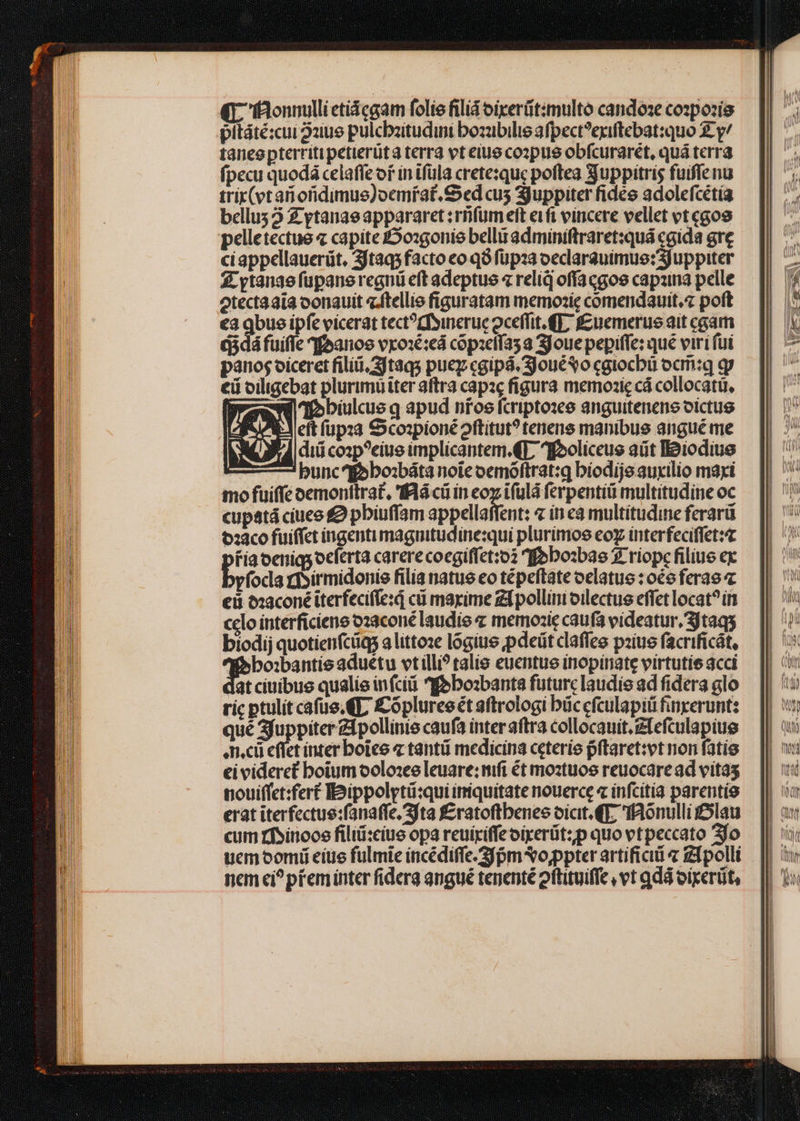 ¶ Nonnulli etiā egam solis filiā dixerūt:multo candore corporis
p̄stātē:cui 9trius pulchritudini horribilis aspect9 existebat:quo Ty
tanes pterriti petierūt a terra vt eius corpus obscurarēt, quā terra
specu quodā celasse dr̄ in īsula crete:que postea Juppitris fuisse nu
trix(vt añ oñdimus)demr̄at. Sed cuʒ Juppiter fidēs adolescētia
bellus 9 Tytanas appararet:rñsum est ei si vincere vellet vt egos
pelle tectus ⁊ capite Gorgonis bellū administraret:quā egida gre
ci appellauerūt. Itaqʒ facto eo qd̄ supra declarauimus:Juppiter
Tytanas supans regnū est adeptus ⁊ reliq̄ ossa egos caprina pelle
9tecta aīa donauit ⁊ stellis figuratam memorie cōmendauit.⁊ post
ea qbus ipse vicerat tect9 Mineruę 9cessit.¶ Euemerus ait egam
q̄ʒdā fuisse Panos vxorē:eā cōpressaʒ a Joue pepisse: quē viri sui
panos diceret filiū. Itaqʒ puerꝝ egipā. Jouē vo egiochū dcm̄:q qꝫ
eū diligebat plurimū iter astra capre figura memorie cā collocatū.
Phiulcus q apud nr̄os scriptores anguitenens dictus
est supra Scorpionē 9stitut9 tenens manibus anguē me
diū corp9 eius implicantem.¶ Policeus aūt Hiodius
hunc Phorbāta noīe demōstrat:q hiodijs auxilio maxi
mo fuisse demonstrat. Nā cū in eoꝝ īsulā serpentiū multitudine oc
cupatā ciues ⁊ phiussam appellassent: ⁊ in ea multitudine ferarū
draco fuisset ingenti magnitudine:qui plurimos eoꝝ interfecisset:⁊
p̄ria deniqʒ deserta carere coegisset:dr̄ Phorbas Triope filius ex
hysocla Mirmidonis filia natus eo tēpestate delatus : oēs feras ⁊
eū draconē iterfecisse:q̄ cū maxime Apollini dilectus esset locat9 in
celo interficiens draconē laudis ⁊ memorie causa videatur. Itaqʒ
hiodij quotienscūqʒ a littore lōgius ꝓdeūt classes prius sacrificāt.
Phorbantis aduētu vt illi9 talis euentus inopinate virtutis acci
dat ciuibus qualis insciū Phorbanta future laudis ad sidera glo
rie ptulit casus.¶ Cōplures ēt astrologi hūc esculapiū finxerunt:
quē Juppiter Apollinis causa inter astra collocauit. Aesculapius
.n.cū esset inter hoīes ⁊ tantū medicina ceteris p̄staret:vt non satis
ei videret hoīum dolores leuare: nisi ēt mortuos reuocare ad vitaʒ
nouisset:fert Hippolytū:qui iniquitate nouerce ⁊ inscitia parentis
erat iterfectus:sanasse. Ita Eratosthenes dicit.¶ Nōnulli Glau
cum Minoos filiū:eius opa reuixisse dixerūt:ꝓ quo vt peccato Jo
uem domū eius fulmīe incēdisse. Ipm vo ꝓpter artificiū ⁊ Apolli
nem ei9 pr̄em inter sidera anguē tenentē 9stituisse , vt qdā dixerūt.